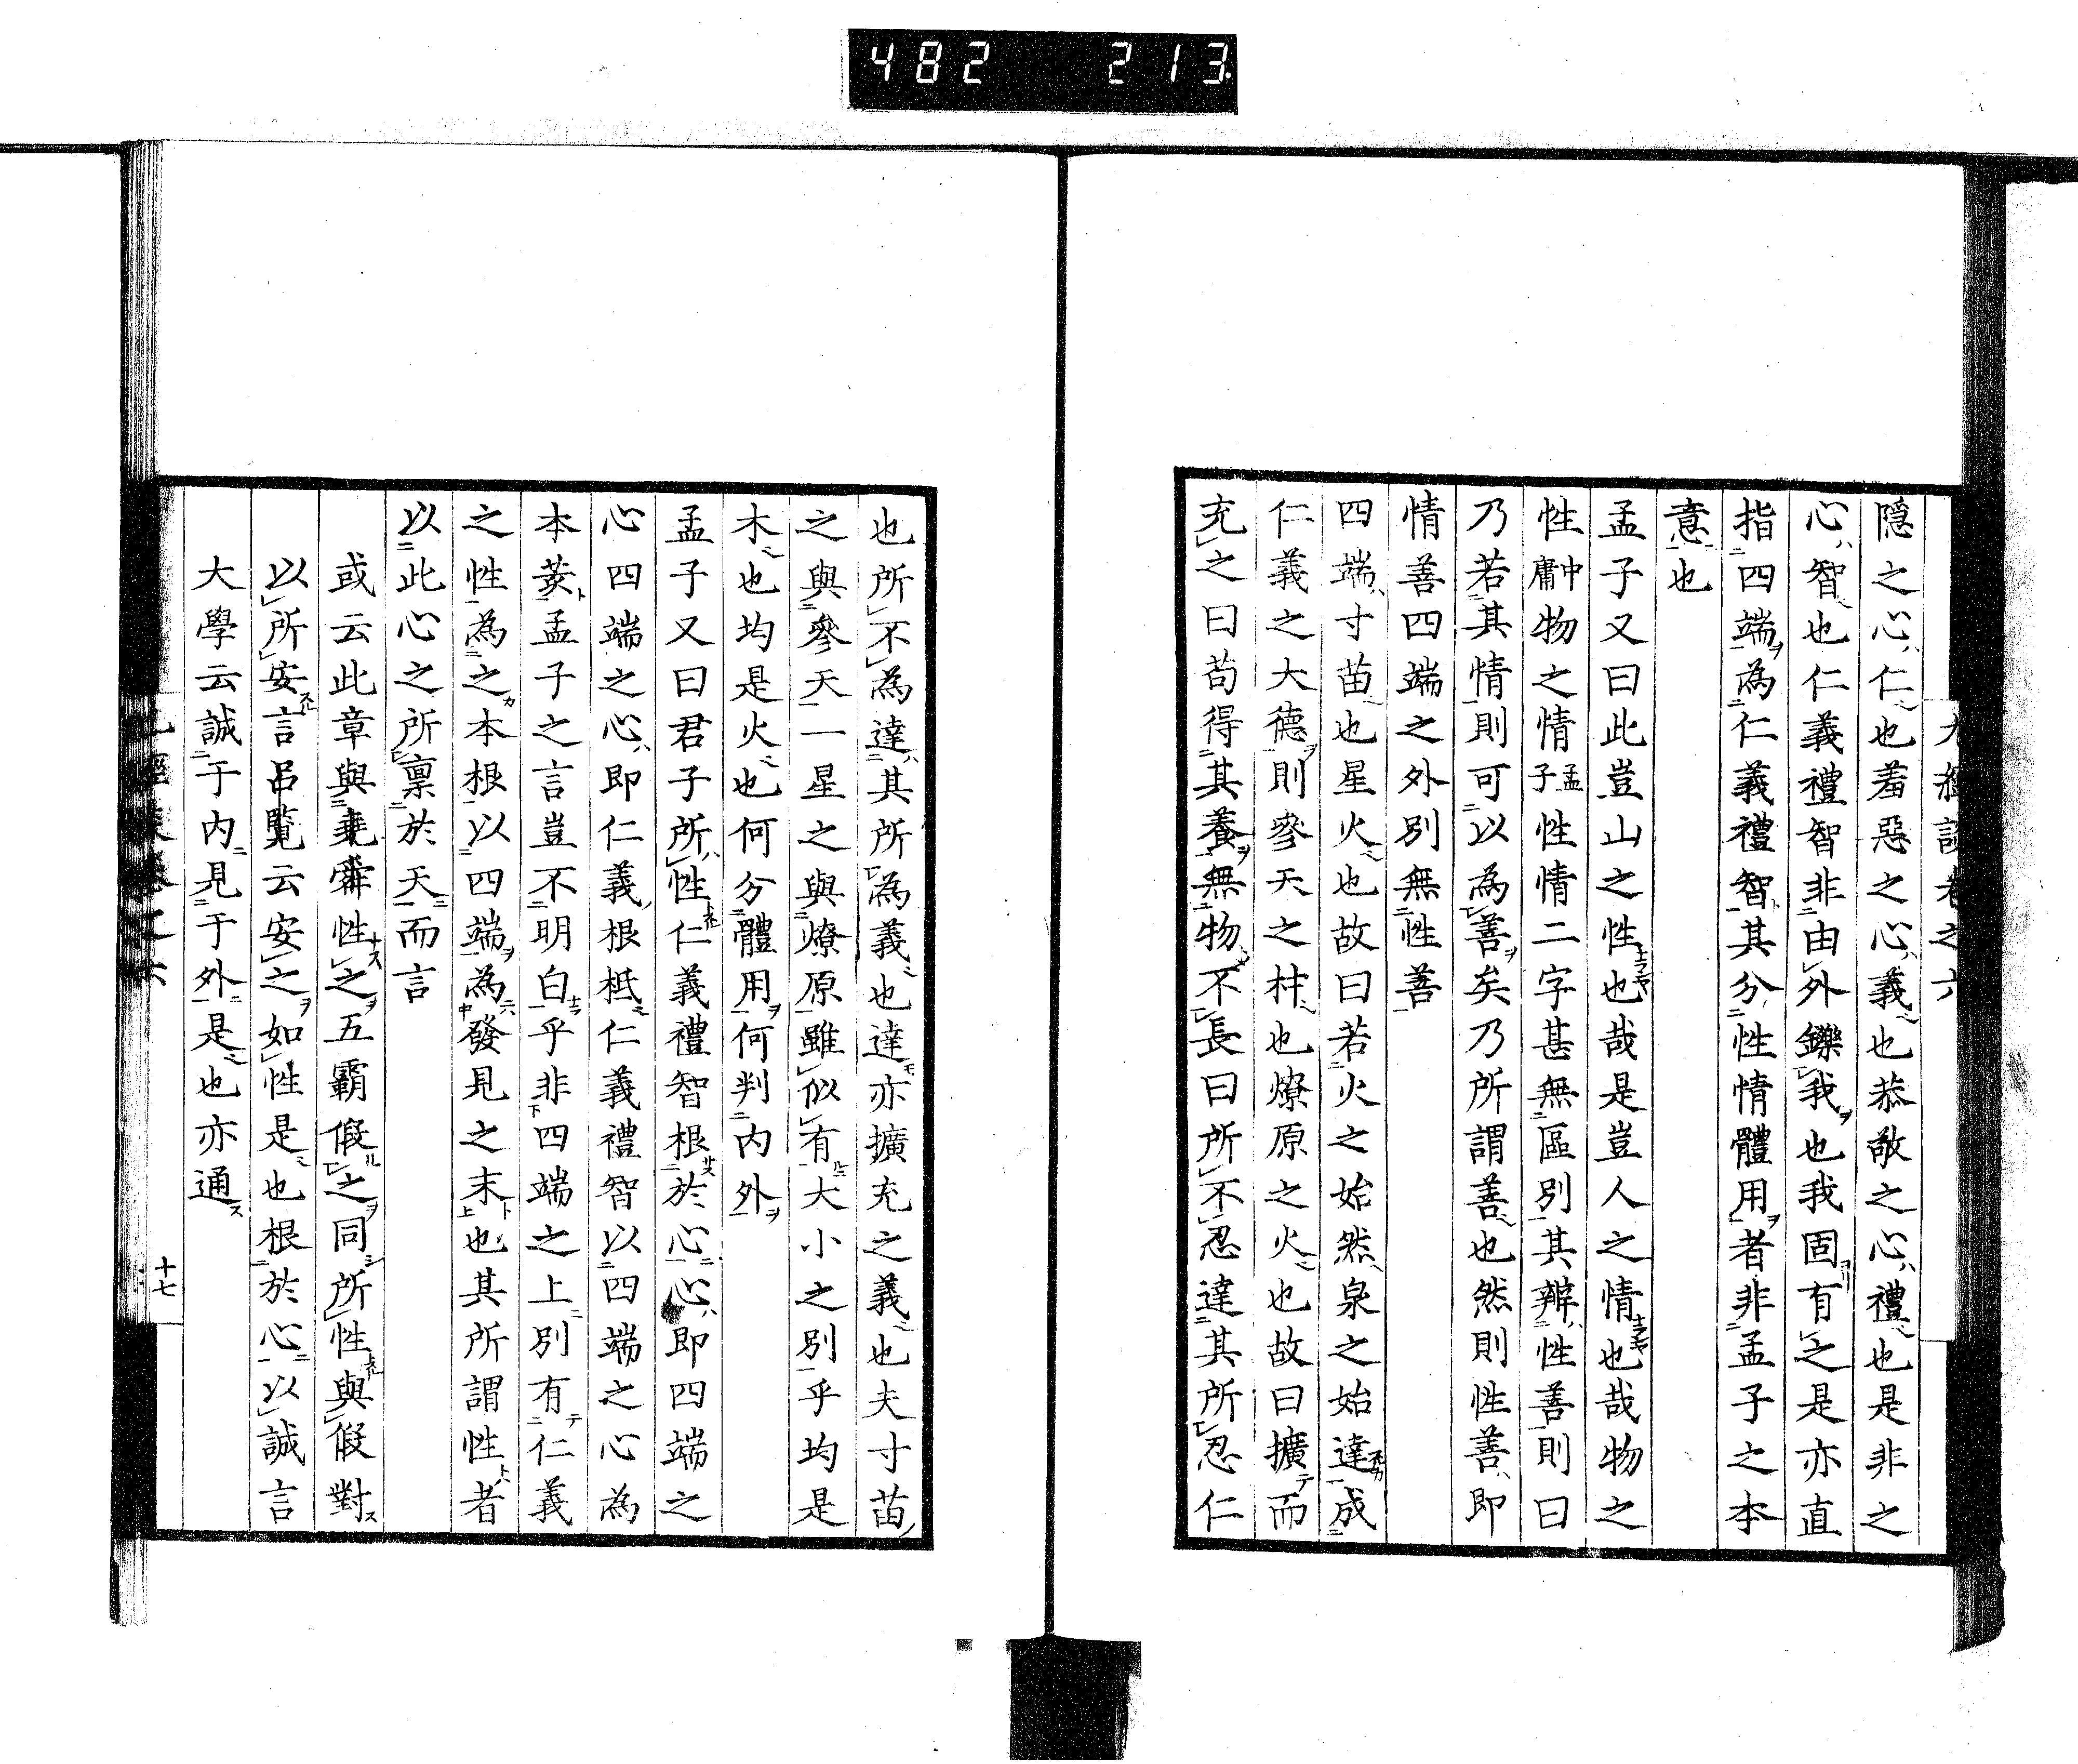 482 213
隱之心仁也羞惡之心義也恭敬之心禮也是非之
心智也仁義禮智非由外鑠我也我固有之是亦直
指四端為仁義禮智其分性情體用者非孟子之本
意也
孟子又曰此豈山之性也哉是豈人之情也哉物之
性中庸物之情孟子性情二字甚無區別其辨性善則曰
乃若其情則可以為善矣乃所謂善也然則性善即
情善四端之外別無性善
四端寸苗也星火也故曰若火之始然泉之始達成
仁義之大德則參天之材也燎原之火也故曰擴而
充之曰苟得其養無物不長曰所不忍達其所忍仁
也所不為達其所為義也達亦擴充之義也夫寸苗
之與參天一星之與燎原雖似有大小之別乎均是
木也均是火也何分體用何判内外
孟子又曰君子所性仁義禮智根於心心即四端之
心四端之心即仁義根柢仁義禮智以四端之心為
本孟子之言豈不明白乎非四端之上別有仁義
之性為之本根以四端為發見之末也其所謂性者
以此心之所稟於天而言
或云此章與堯舜性之五霸假之同所性與假對
以所安言呂覽云安之如性是也根於心以誠言
大學云誠于内見于外是也亦通
十七